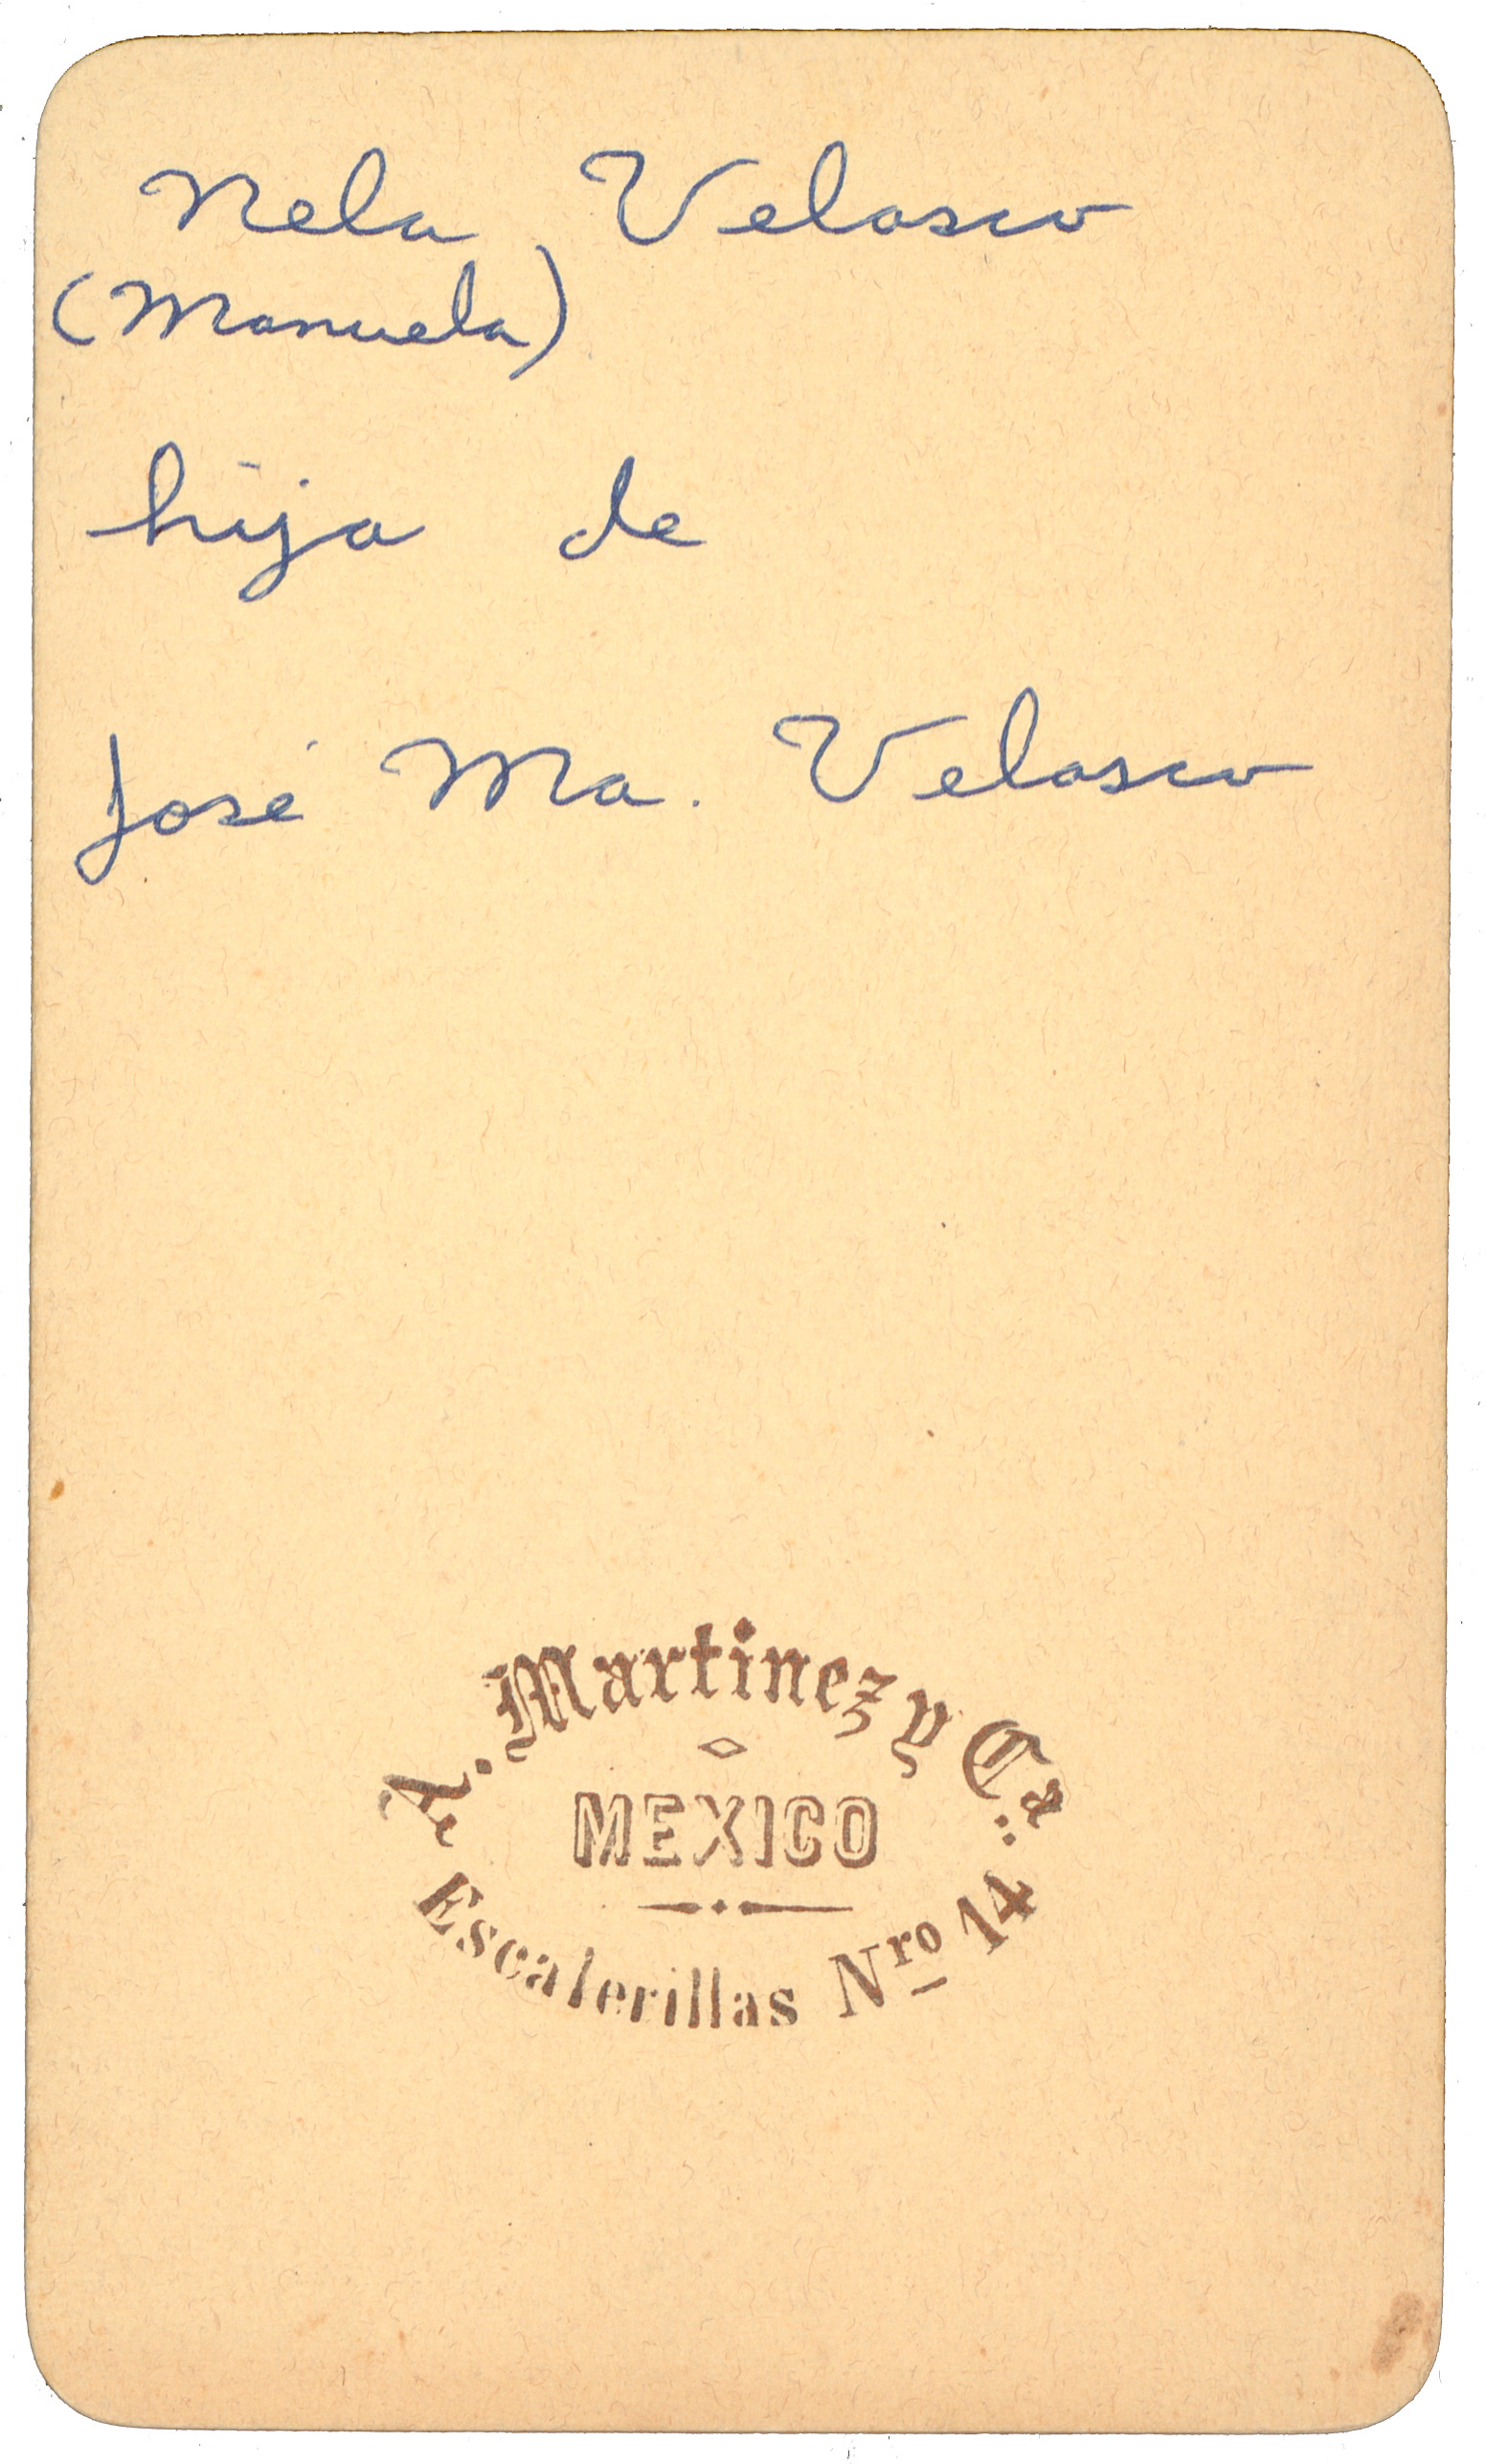 Nela Velasco
(Manuela)
hija de
José Ma. Velasco
A. Martinez y Cª.
MEXICO
Escalerillas Nro 14